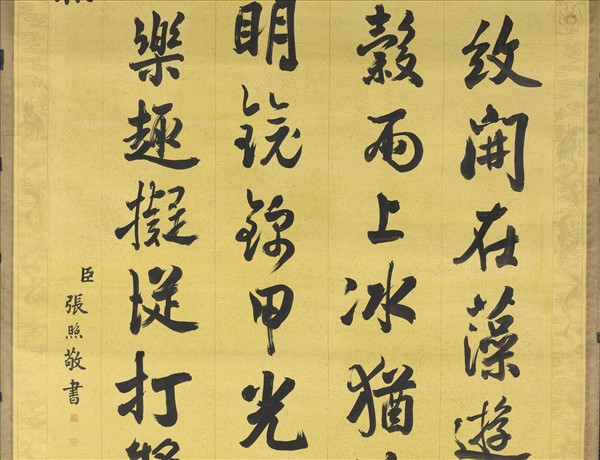 紋開在藻遊
穀雨上冰猶
明鏡錦甲光
樂趣擬從打
臣張照敬書